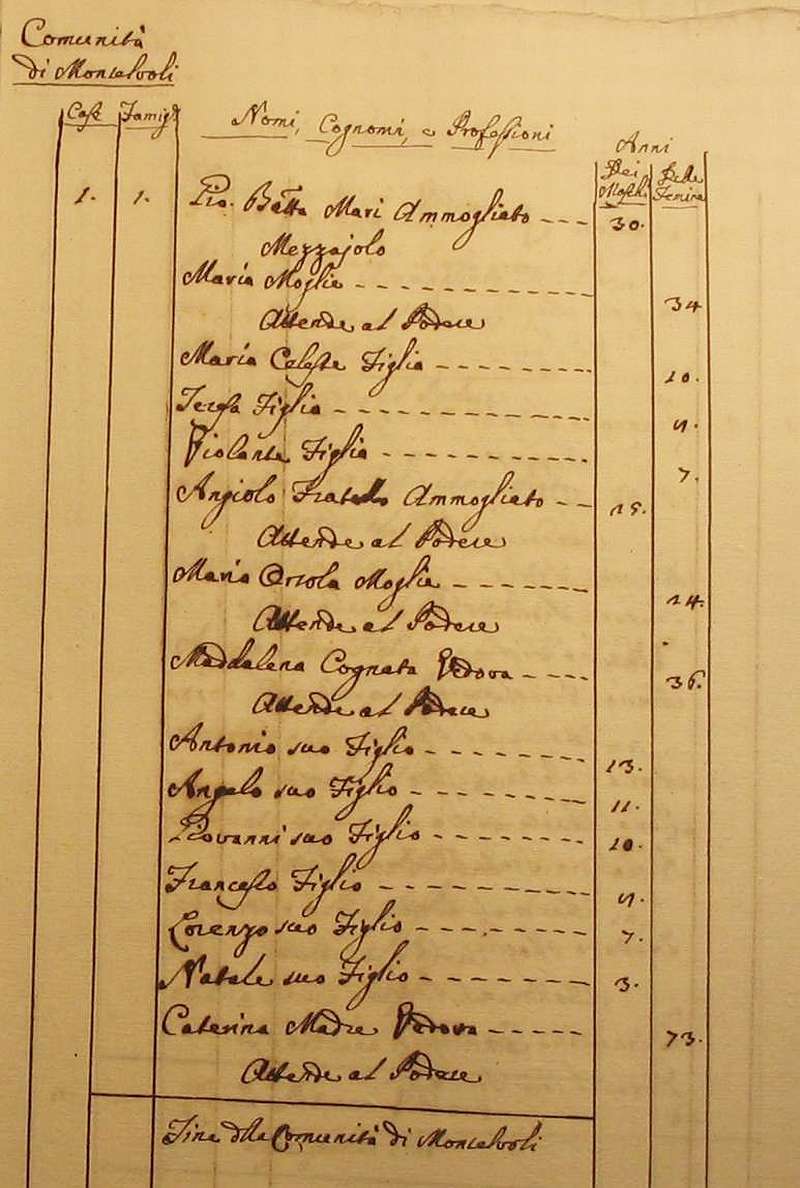 Comunità
di Montalvoli
Case Famig.e Nomi, Cognomi, e Professioni Anni
Dei Maschi Delle Femine
1. 1. Gio. Batta Mari Ammogliato 30.
Mezzajolo
Maria Moglie 34
Attende al Podere
Maria Celeste Figlia 10.
Teresa Figlia 9.
Violante Figlia 7.
Angiolo Fratello Ammogliato
Attende al Podere
Maria Orsola Moglie 24.
Attende al Podere
Maddalena Cognata Vedova 36.
Attende al Podere
Antonio suo Figlio 13.
Angelo suo Figlio 11.
Giovanni suo Figlio 10.
Francesco Figlio 9.
Lorenzo suo Figlio 7.
Natale suo Figlio 3.
Caterina Madre Vedova 73.
Attende al Podere
Fine della Comunità di Montalvoli